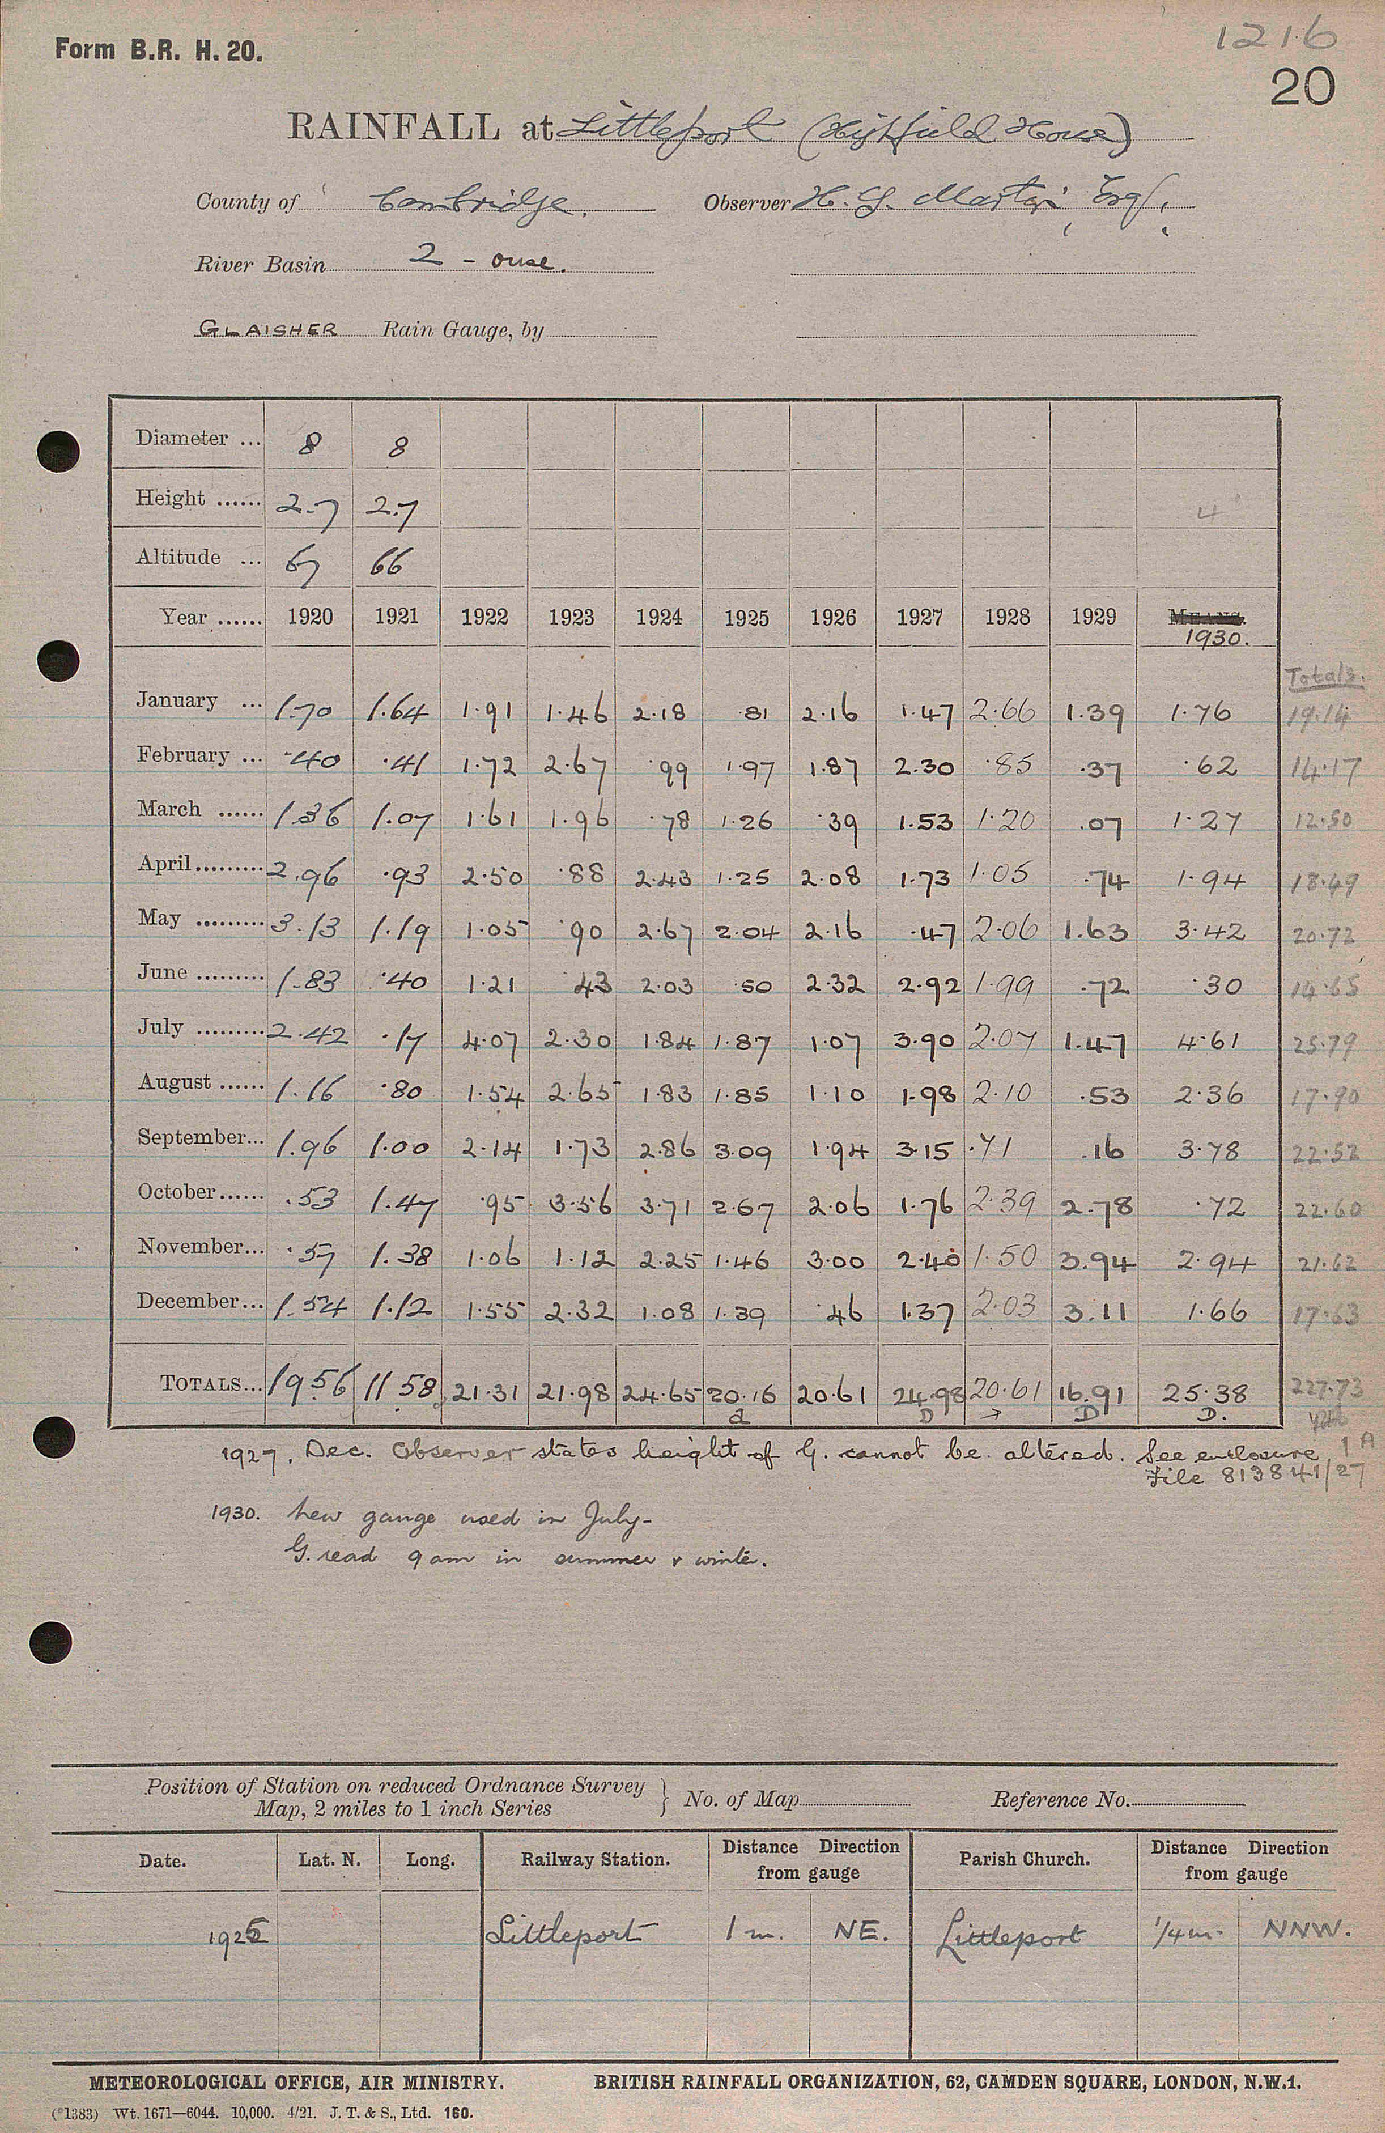 Form B.R. H. 20.
1216
20
RAINFALL at Littleport (Highfield House)
County of Cambridge. Observer H. Martin Esq.
River Basin 2 - Ouse.
GLAISHER Rain Gauge, by
Diameter ... 8 8
Height ...... 2.7 2.7 4
Altitude ... 67 66
Year ...... 1920 1921 1922 1923 1924 1925 1926 1927 1928 1929 MEANS. 1930.
Totals.
January ... 1.70 1.64 1.91 1.46 2.18 .81 2.16 1.47 2.66 1.39 1.76 19.14
February ... .40 .41 1.72 2.67 .99 1.97 1.87 2.30 .85 .37 .62 14.17
March ...... 1.36 1.07 1.61 1.96 .78 1.26 .39 1.53 1.20 .07 1.27 12.50
April ......... 2.96 .93 2.50 .88 2.43 1.25 2.08 1.73 1.05 .74 1.94 18.49
May ......... 3.13 1.19 1.05 .90 2.67 2.04 2.16 .47 2.06 1.63 3.42 20.72
June ......... 1.83 .40 1.21 .43 2.03 .50 2.32 2.92 1.99 .72 .30 14.65
July ......... 2.42 .17 4.07 2.30 1.84 1.87 1.07 3.90 2.07 1.47 4.61 25.79
August ...... 1.16 .80 1.54 2.65 1.83 1.85 1.10 1.98 2.10 .53 2.36 17.90
September... 1.96 1.00 2.14 1.73 2.86 3.09 1.94 3.15 .71 .16 3.78 22.52
October...... .53 1.47 .95 3.56 3.71 2.67 2.06 1.76 2.39 2.78 .72 22.60
November... .57 1.38 1.06 1.12 2.25 1.46 3.00 2.40 1.50 3.94 2.94 21.62
December... 1.54 1.12 1.55 2.32 1.08 1.39 .46 1.37 2.03 3.11 1.66 17.63
TOTALS... 19.56 11.58 21.31 21.98 24.65 20.16 20.61 24.98 20.61 16.91 25.38 227.73
d D D D.
1927. Dec. Observer states height of G. cannot be altered. See enclosure 1A
File 813841/27
1930. New gauge used in July-
G. read 9am in summer & winter.
Position of Station on reduced Ordnance Survey Map, 2 miles to 1 inch Series } No. of Map Reference No.
Date. Lat. N. Long. Railway Station. Distance Direction from gauge Parish Church. Distance Direction from gauge
1925 Littleport 1 m. NE. Littleport 1/4 m. NNW.
METEOROLOGICAL OFFICE, AIR MINISTRY. BRITISH RAINFALL ORGANIZATION, 62, CAMDEN SQUARE, LONDON, N.W.1.
(*1383) Wt. 1671—6044. 10,000. 4/21. J. T. & S., Ltd. 160.